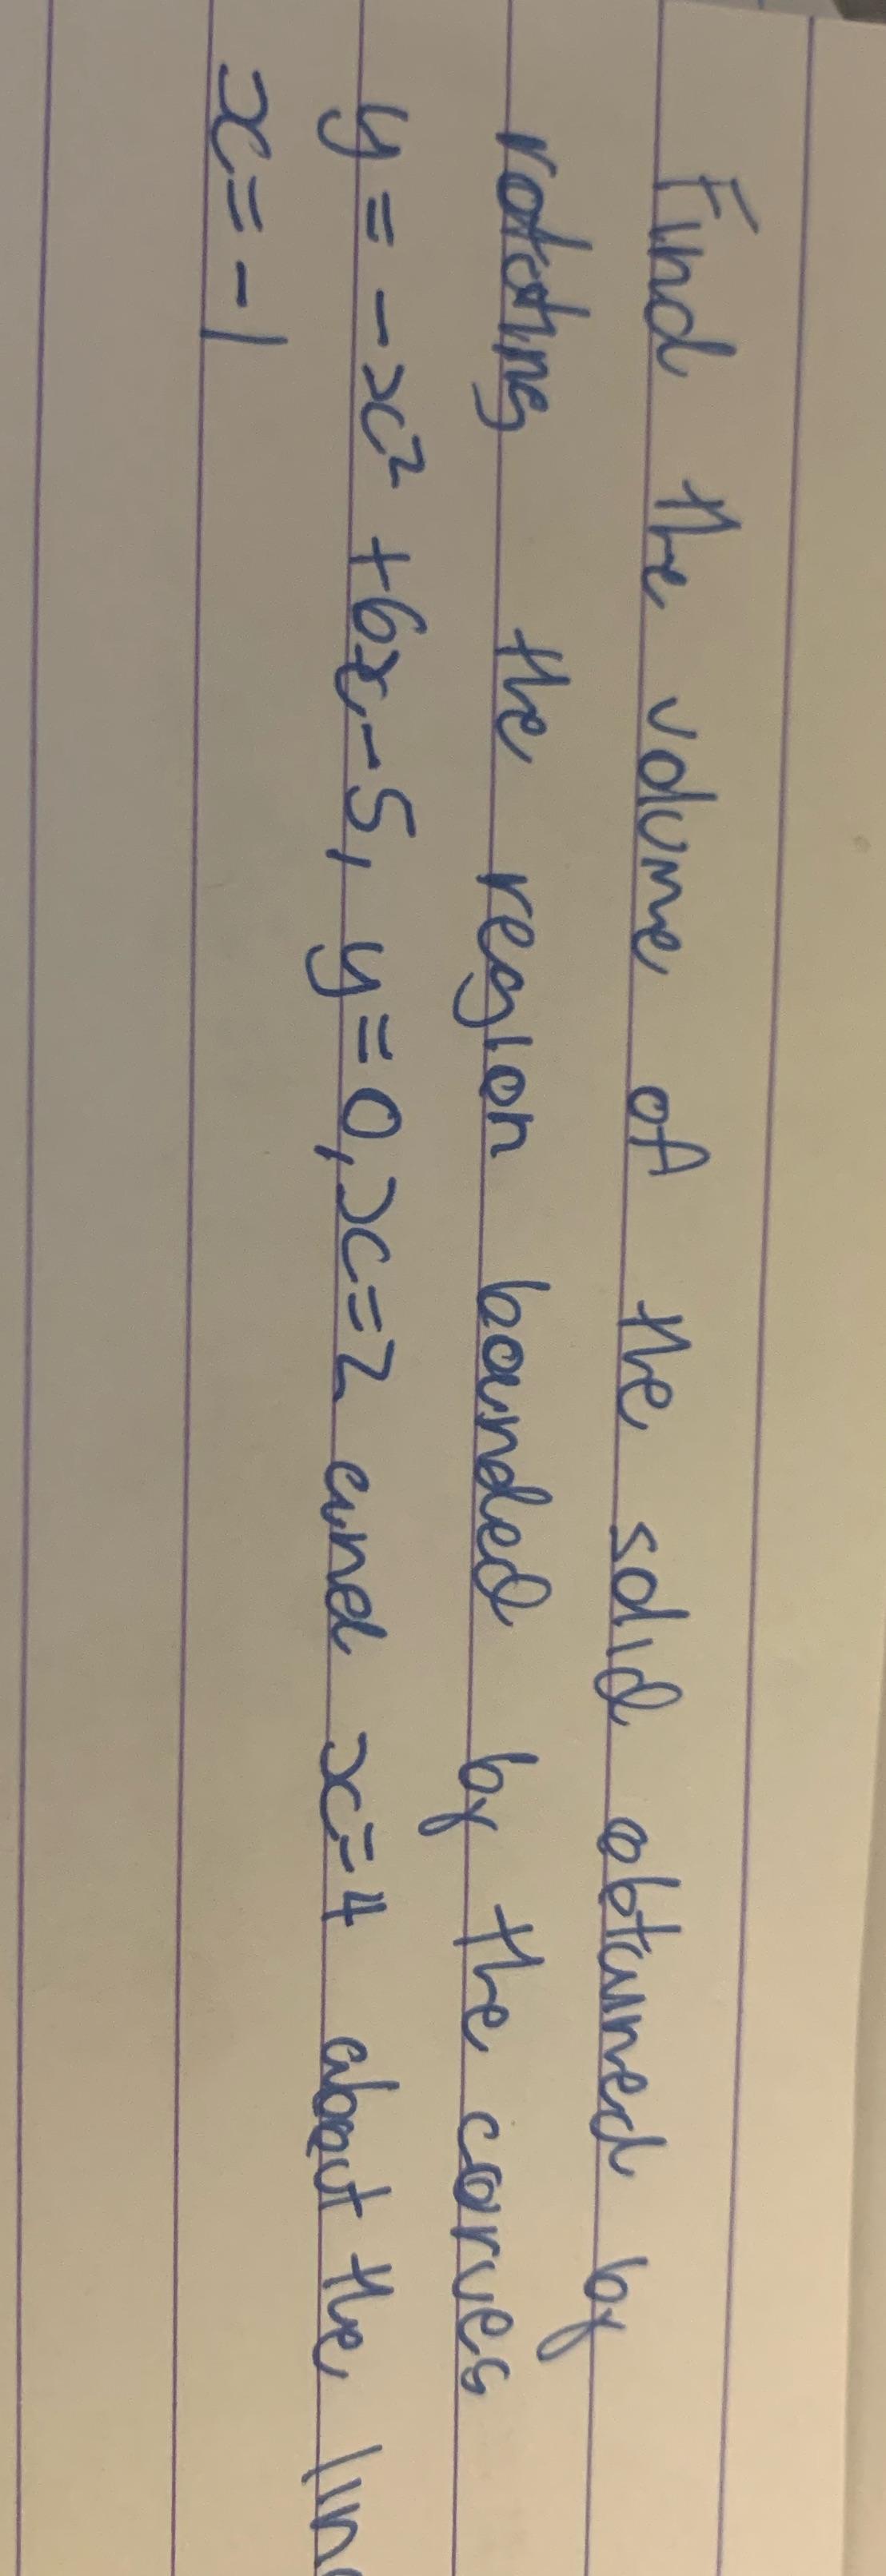 Find the volume of the solid obtained by
rotating the region bounded by the corves
y = -x² + 6x - 5, y = 0, x = 2 and x = 4 about the lin
x = -1